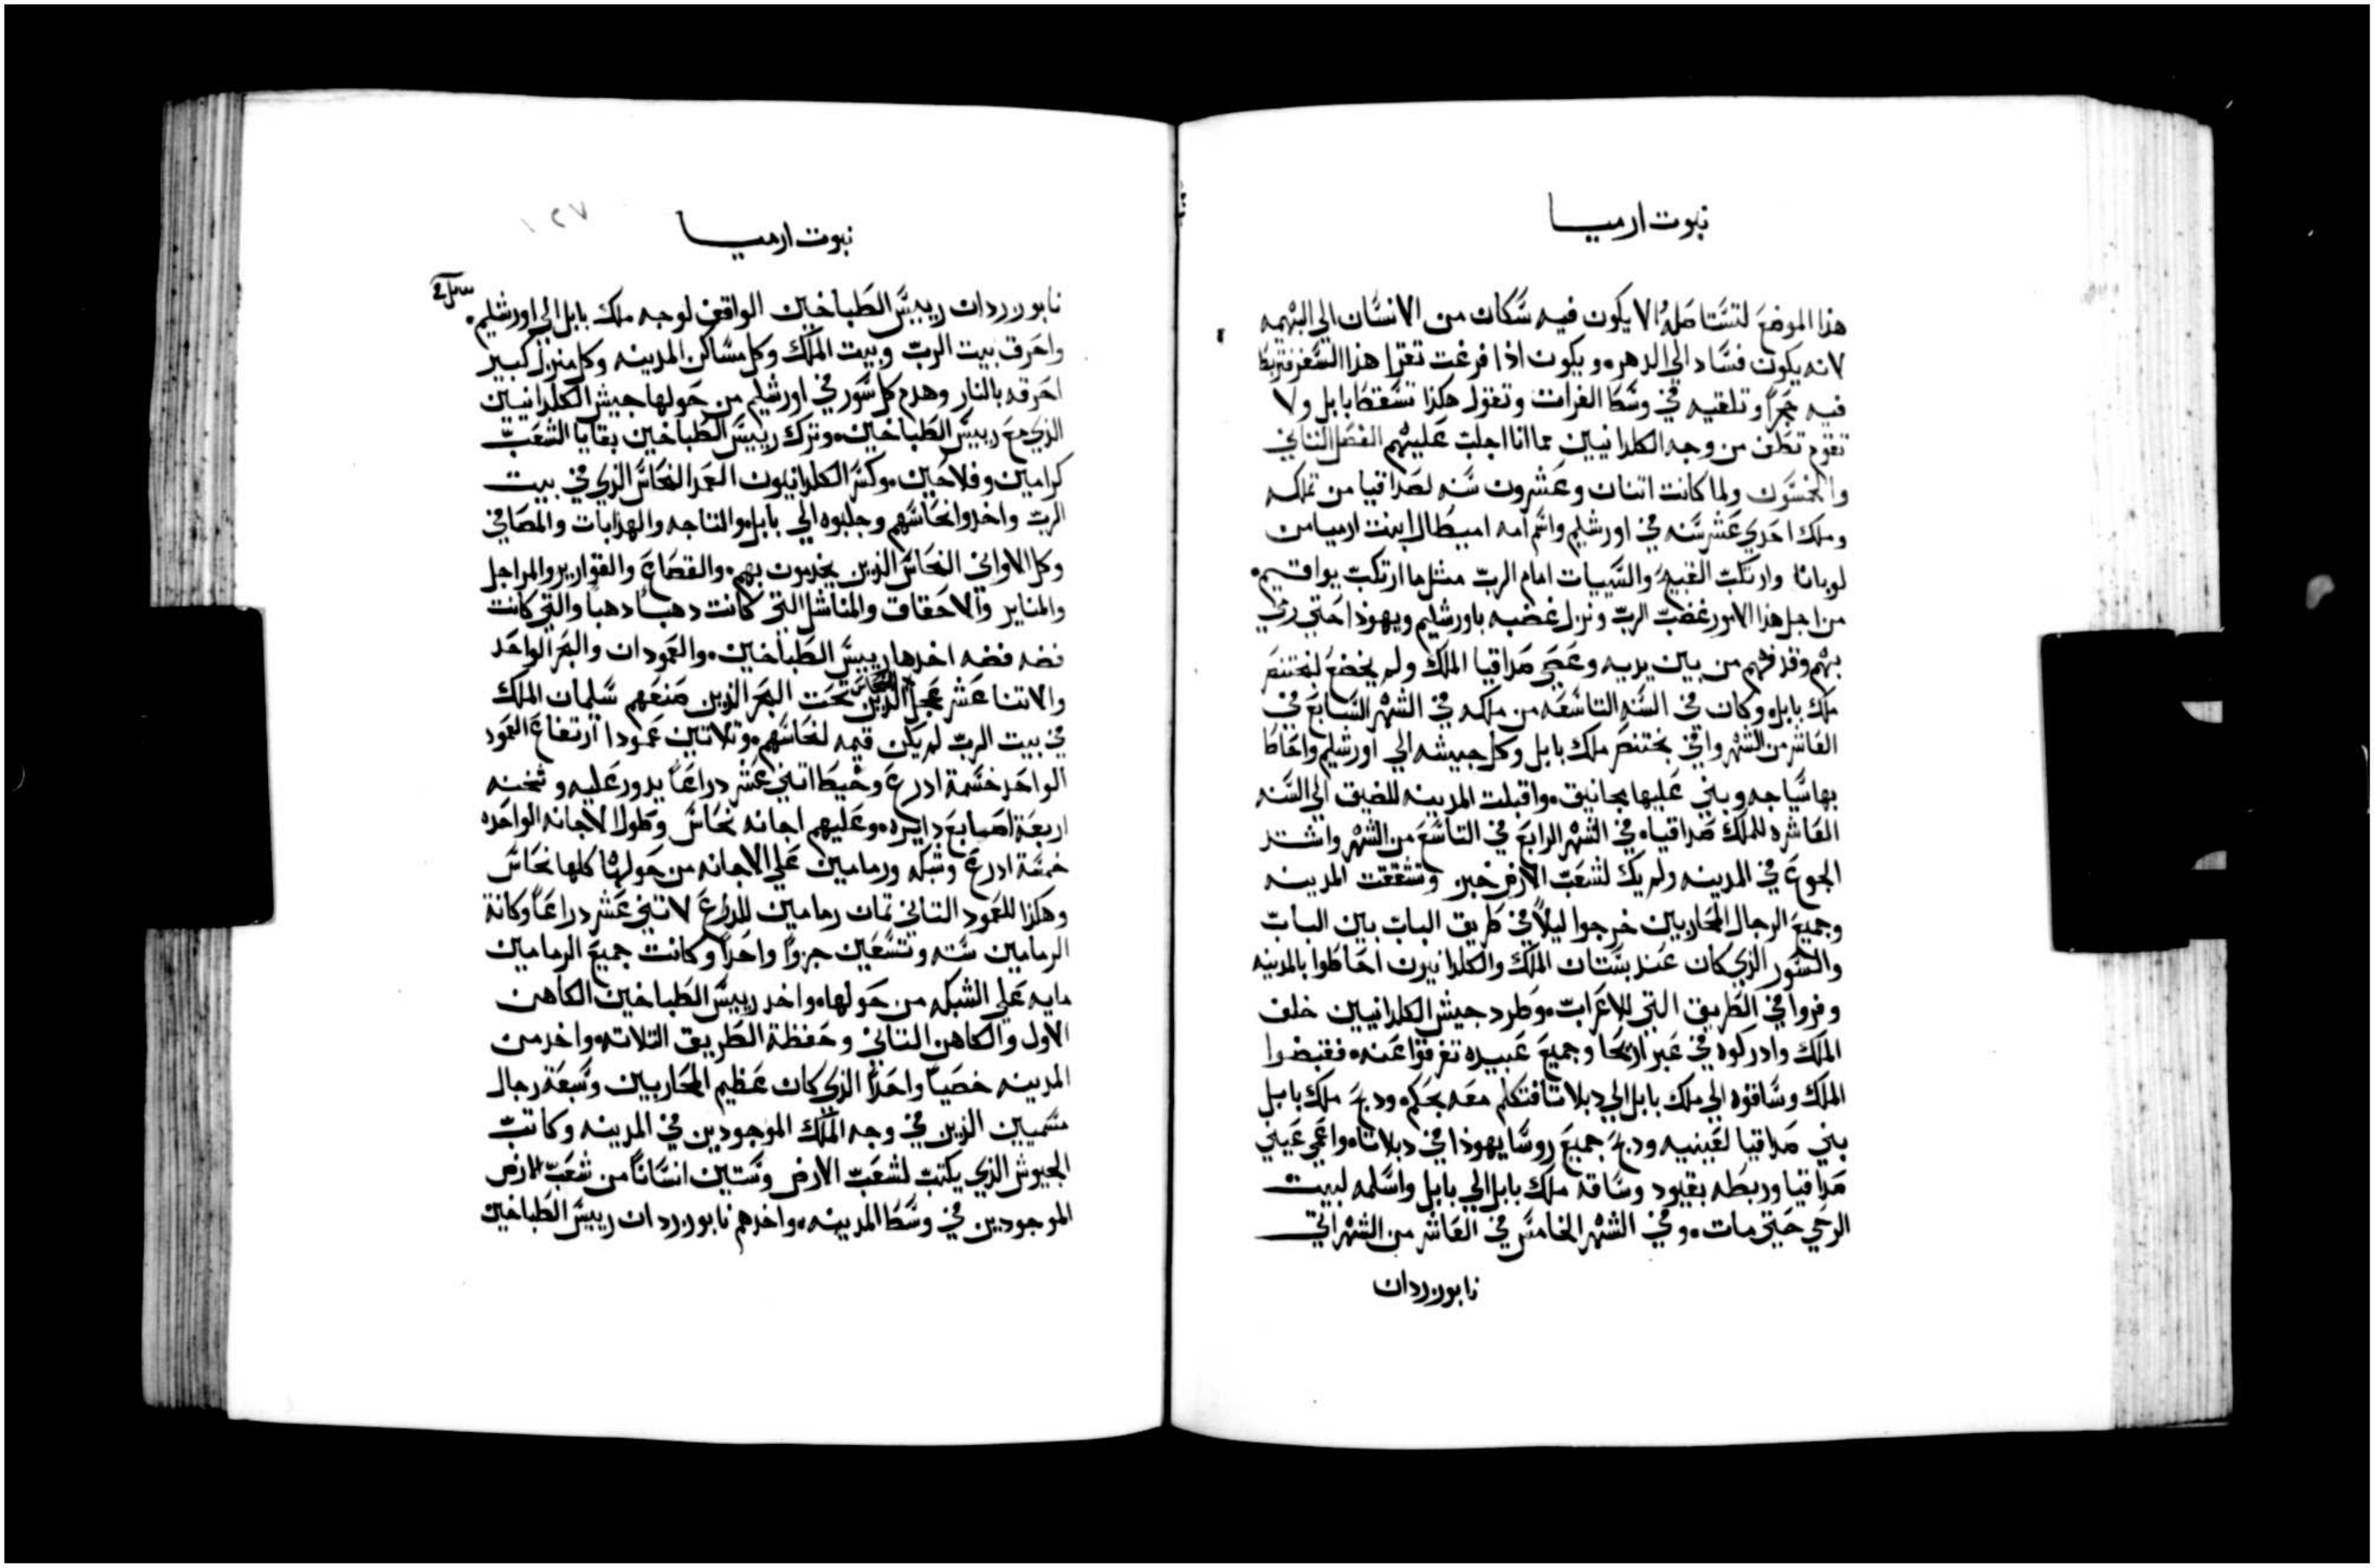 نبوت ارميا
هذا الموضع لتستاصله الا يكون فيه سكان من الانسان الي البهمه
لانه يكون فساد الي الدهر. ويكون اذا فرغت تقرا هذا السفر فتربط
فيه حجراً وتلقيه في وسط الفرات وتقول هكذا تسقط بابل ولا
تقوم تطن من وجه الكلدانيين مما انا اجلب عليهم الفصل الثاني
والخمسون ولما كانت اتنان وعشرون سنه لصداقيا من تملكه
وملك احدي عشر سنه في اورشليم واسم امه اميطال ابنت ارميا من
لوبانا وارتكب القبيح والسيات امام الرب مثل ما ارتكب يواقيم.
من اجل هذا الامور غضب الرب ونزل غضبه باورشليم ويهوذا حتي رمي
بهم وقدفهم من بين يديه وعصي صداقيا الملك ولم يخضع لبختنصر
ملك بابل. وكان في السنه التاسعه من ملكه في الشهر السابع في
العاشر من الشهر وافي بختنصر ملك بابل وكل جيشه الي اورشليم واحاط
بها سياجه وبني عليها مجانيق. واقبلت المدينه للضيق الي السنه
العاشره للملك صداقيا. في الشهر الرابع في التاسع من الشهر واشتد
الجوع في المدينه ولم يك لشعب الارض خبز وتشققت المدينه
وجميع الرجال المحاربين خرجوا ليلاً في طريق الباب بين الباب
والسور الذي كان عند بستان الملك والكلدانيون احاطوا بالمدينه
وفروا في الطريق التي للاعراب. وطرد جيش الكلدانيين خلف
الملك وادركوه في عبر اريحا وجميع عبيده تفرقوا عنه. فقبضوا
الملك وساقوه الي ملك بابل الي دبلاتا فتكلم معه بحكم. ودبح ملك بابل
بني صداقيا لعينيه ودبح جميع روسا يهوذا في دبلاتا. واعمي عيني
صداقيا وربطه بقيود وساقه ملك بابل الي بابل واسلمه لبيت
الرحي حتي مات. وفي الشهر الخامس في العاشر من الشهر اتي
نابوزردان
١٢٧
نبوت ارميا
نابوزردان رييس الطباخين الواقف لوجه ملك بابل الي اورشليم.
واحرق بيت الرب وبيت الملك وكل مساكن المدينه وكل منزل كبير
احرقه بالنار وهدم كل سور في اورشليم من حولها جيش الكلدانيين
الذي مع رييس الطباخين. وترك رييس الطباخين بقايا الشعب
كرامين وفلاحين. وكسر الكلدانيون العمد النحاس الذي في بيت
الرب واخدوا نحاسهم وجلبوه الي بابل. والتاجه والهزابات والمصافي
وكل الاواني النحاس الذين يخدمون بهم. والقصاع والقوارير والمراجل
والمناير والاحقاق والمناشل التي كانت دهباً دهباً والتي كانت
فضه فضه اخدها رييس الطباخين. والعمودان والبحر الواحد
والاتنا عشر عجل النحاس الذين تحت البحر الذين صنعهم سليمان الملك
في بيت الرب لم يكن قيمه لنحاسهم. وتلاتين عمودا ارتفاع العمود
الواحد خسمة ادرع وخيط اتني عشر دراعاً يدور عليه وثخنه
اربعة اصابع دايره. وعليهم اجانه نحاس وطول الاجانه الواحده
خمسة ادرع وشبكه ورمامين علي الاجانه من حولها كلها نحاس
وهكذا للعمود التاني تمان رمامين للدراع لاتني عشر دراعاً وكانة
الرمامين سته وتسعين جزواً واحداً وكانت جميع الرمامين
مايه علي الشبكه من حولها. واخد رييس الطباخين الكاهن
الاول والكاهن التاني وحفظة الطريق التلاته. واخد من
المدينه خصياً واحداً الذي كان عظيم المحاربين وسبعة رجال
مسميين الذين في وجه الملك الموجودين في المدينه وكاتب
الجيوش الذي يكتب لشعب الارض وستين انساناً من شعب الارض
الموجودين في وسط المدينه. واخدهم نابوزردان رييس الطباخين